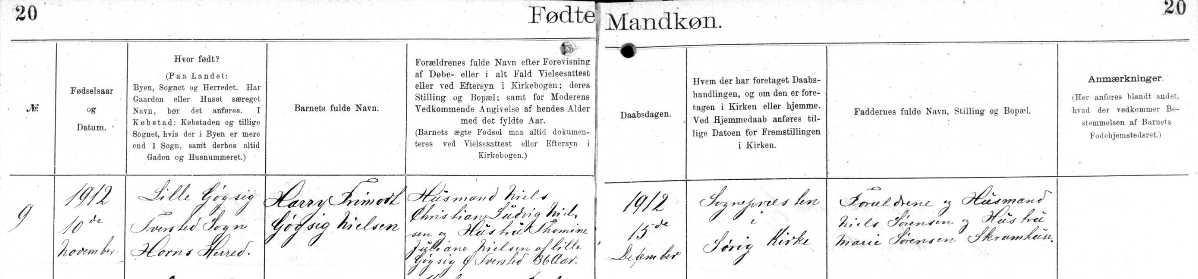 20
Fødte
Mandkøn.
20
№
Fødselsaar
og
Datum.
Hvor født?
(Paa Landet:
Byen, Sognet og Herredet. Har
Gaarden eller Huset særeget
Navn, bør det anføres. I
Købstad: Købstaden og tillige
Sognet, hvis der i Byen er mere
end 1 Sogn, samt derhos altid
Gaden og Husnummeret.)
Barnets fulde Navn.
Forældrenes fulde Navn efter Forevisning
af Døbe- eller i alt Fald Vielsesattest
eller ved Eftersyn i Kirkebogen; deres
Stilling og Bopæl; samt for Moderens
Vedkommende Angivelse af hendes Alder
med det fyldte Aar.
(Barnets ægte Fødsel maa altid dokumen-
teres ved Vielsesattest eller Eftersyn i
Kirkebogen.)
Daabsdagen.
Hvem der har foretaget Daabs-
handlingen, og om den er fore-
tagen i Kirken eller hjemme.
Ved Hjemmedaab anføres til-
lige Datoen for Fremstillingen
i Kirken.
Faddernes fulde Navn, Stilling og Bopæl.
Anmærkninger.
(Her anføres blandt andet,
hvad der vedkommer Be-
stemmelsen af Barnets
Fødehjemstedsret.)
9
1912
10de
November
Lille Gøgsig
Tversted Sogn
Horns Herred.
Harry Frimodt
Gøgsig Nielsen
Husmand Niels
Christian Ludvig Niel-
sen og Hustru Thomine
Juliane Nielsen af Lille
Gøgsig i Tversted 36 Aar.
1912
15de
December
Sognepræsten
i
Sørig Kirke
Forældrene og Husmand
Niels Sørensen og Hustru
Marie Sørensen Skramhuse.